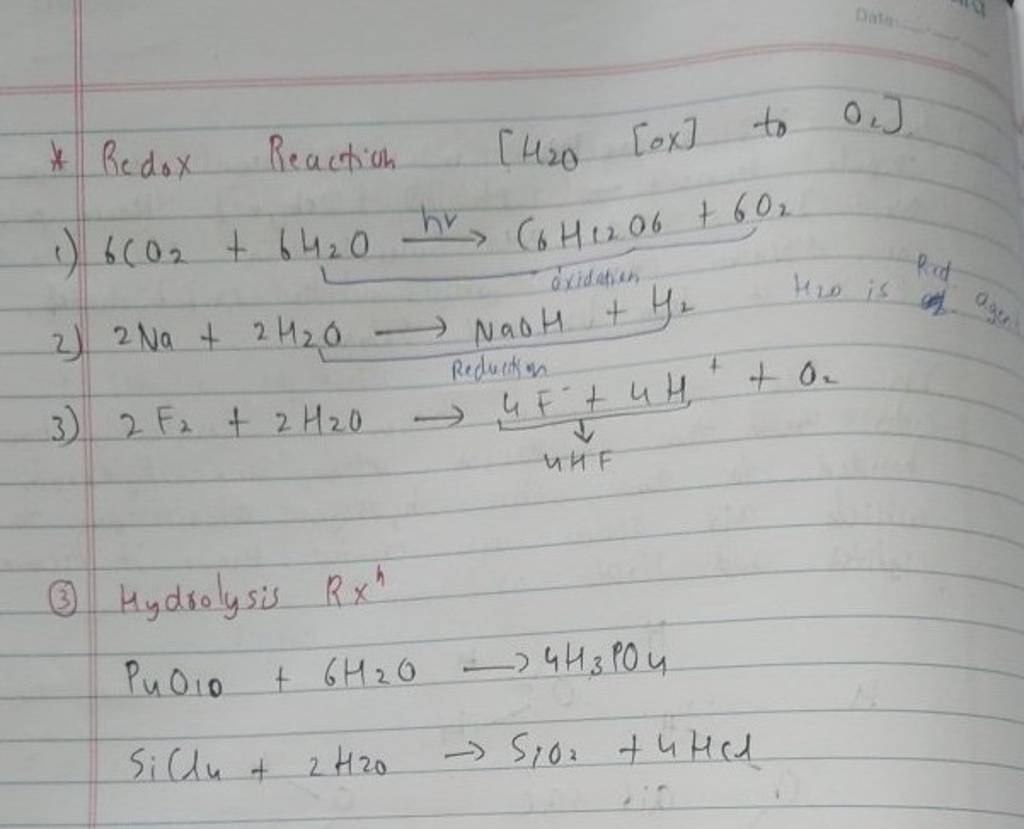 Date:
* Redox Reaction [H2O [ox] to O2]
1) 6CO2 + 6H2O hv→ C6H12O6 + 6O2
oxidation
H2O is Red agen
2) 2Na + 2H2O → NaOH + H2
Reduction
3) 2F2 + 2H2O → 4F⁻ + 4H⁺ + O2
↓
4HF
③ Hydrolysis Rxⁿ
P4O10 + 6H2O → 4H3PO4
SiCl4 + 2H2O → SiO2 + 4HCl